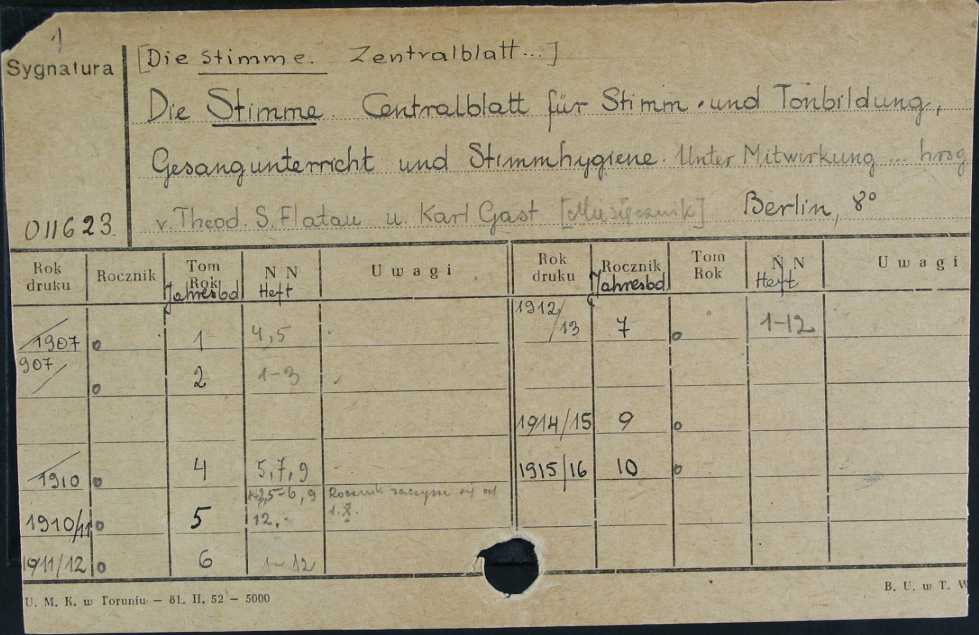 1
Sygnatura
[Die Stimme. Zentralblatt...]
Die Stimme Centralblatt für Stimm- und Tonbildung,
Gesangunterricht und Stimmhygiene. Unter Mitwirkung ... hrsg
v. Theod. S. Flatau u. Karl Gast [Miesięcznik] Berlin, 8°
011623.
Rok druku Rocznik Tom Rok Jahresbd N N Heft Uwagi Rok druku Rocznik Jahresbd Tom Rok N N Heft Uwagi
/1907 o 1 4,5 1912/13 7 o 1-12
907/ o 2 1-3
1914/15 9 o
/1910 o 4 5,7,9 1915/16 10 o
1910/11 o 5 5-6, 9 12, Rocznik zaczyna się od 1.X.
1911/12 o 6 1-12
U. M. K. w Toruniu — 81. II. 52 — 5000 B. U. w T. W